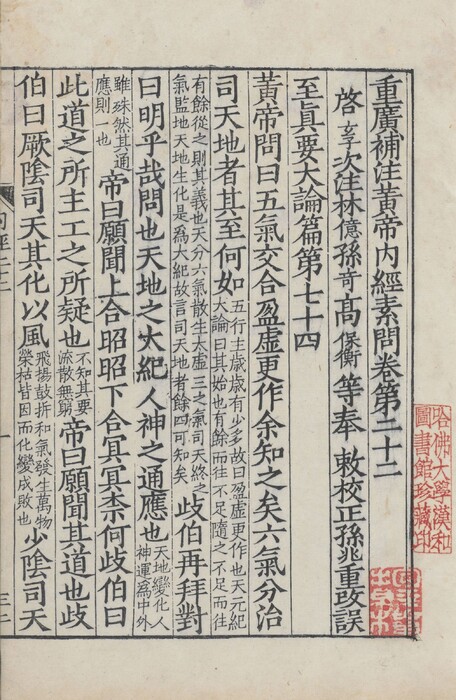 重廣補注黃帝內經素問卷第二十二
啓玄子次注林億孫奇高保衡等奉敕校正孫兆重改誤
至真要大論篇第七十四
黃帝問曰五氣交合盈虛更作余知之矣六氣分治
司天地者其至何如五行主歲歲有少多故曰盈虛更作也天元紀大論曰其始也有餘而往不足隨之不足而往
有餘從之則其義也天分六氣散生太虛三之氣司天終之氣監地天地生化是為大紀故言司天地者餘四可知矣歧伯再拜對
曰明乎哉問也天地之大紀人神之通應也天地變化人神運為中外
雖殊然其通應則一也帝曰願聞上合昭昭下合冥冥柰何歧伯曰
此道之所主工之所疑也不知其要流散無窮帝曰願聞其道也歧
伯曰厥陰司天其化以風飛揚鼓拆和氣發生萬物榮枯皆因而化變成敗也少陰司天
哈佛大學漢和
圖書館珍藏印